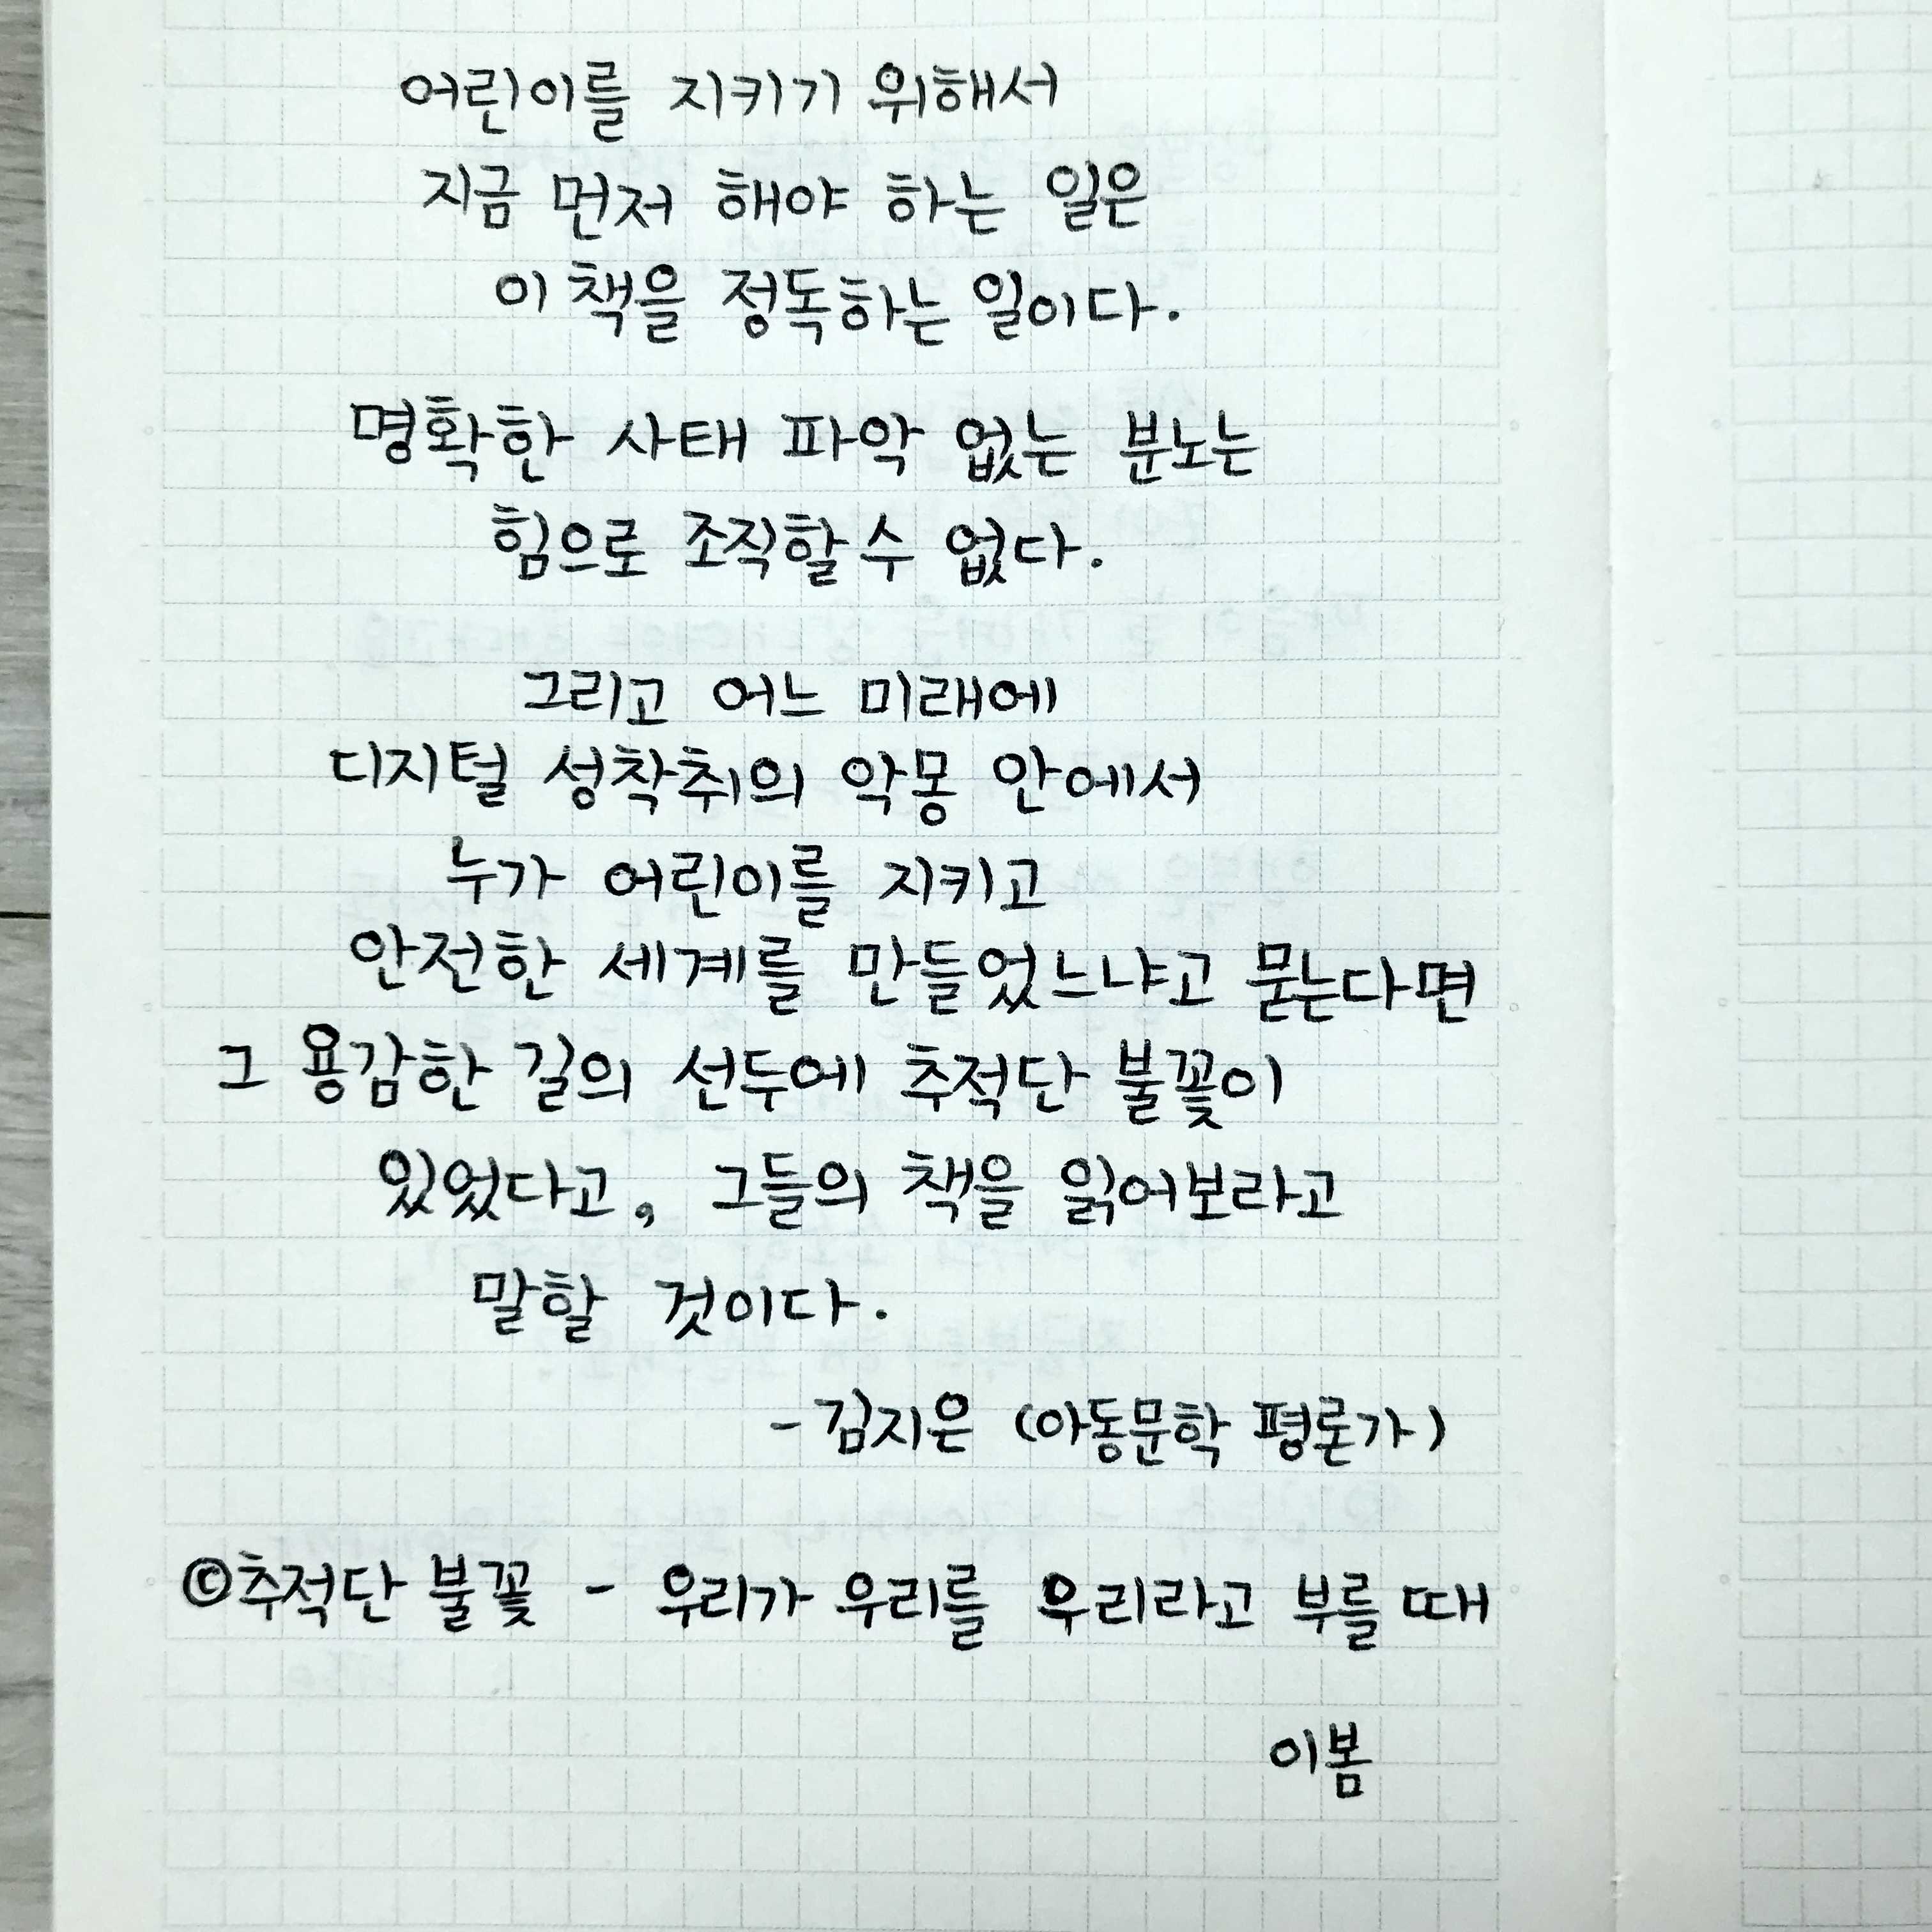 어린이를 지키기 위해서
지금 먼저 해야 하는 일은
이 책을 정독하는 일이다.
명확한 사태 파악 없는 분노는
힘으로 조직할 수 없다.
그리고 어느 미래에
디지털 성착취의 악몽 안에서
누가 어린이를 지키고
안전한 세계를 만들었느냐고 묻는다면
그 용감한 길의 선두에 추적단 불꽃이
있었다고, 그들의 책을 읽어보라고
말할 것이다.
- 김지은 (아동문학 평론가)
©추적단 불꽃 - 우리가 우리를 우리라고 부를 때
이봄